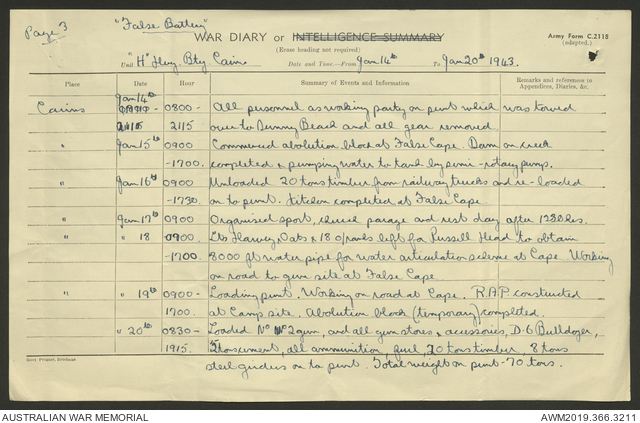 Page 3
"False Battery"
WAR DIARY or INTELLIGENCE SUMMARY
Army Form C.2118
(adapted.)
(Erase heading not required)
Unit "H" Hvy. Bty Cairns Date and Time.—From Jan 14th To Jan 20th 1943.
Place Date Hour Summary of Events and Information Remarks and references to Appendices, Diaries, &c.
Cairns Jan 14th 0800 - All personnel as working party on punt which was towed
2115 2115 over to Sunny Beach and all gear removed.
" Jan 15th 0900 Commenced ablution block at False Cape. Dam on creek
-1700. completed & pumping water to tank by semi-rotary pump.
" Jan 16th 0900 Unloaded 20 tons timber from railway trucks and re-loaded
-1730. on to punt. Kitchen completed at False Cape.
" Jan 17th 0900 Organised sport, church parade and rest day after 1230 hrs.
" " 18 0900. Lts Harvey, Oats & 18 o/ranks left for Russell Head to obtain
-1700 8000 ft water pipe for water articulation scheme at Cape. Working
on road to gun site at False Cape.
" " 19th 0900- Loading punt. Working on road at Cape. R.A.P constructed
1700. at Camp site. Abolution block (temporary) completed.
" 20th 0830- Loaded No 2 gun, and all gun stores & acessories, D-6 Bulldozer,
1915. cement, all ammunition, fuel, 20 tons timber, 8 tons
steel girders on to punt. Total weight on punt - 70 tons.
Govt. Printer, Brisbane
AUSTRALIAN WAR MEMORIAL
AWM2019.366.3211